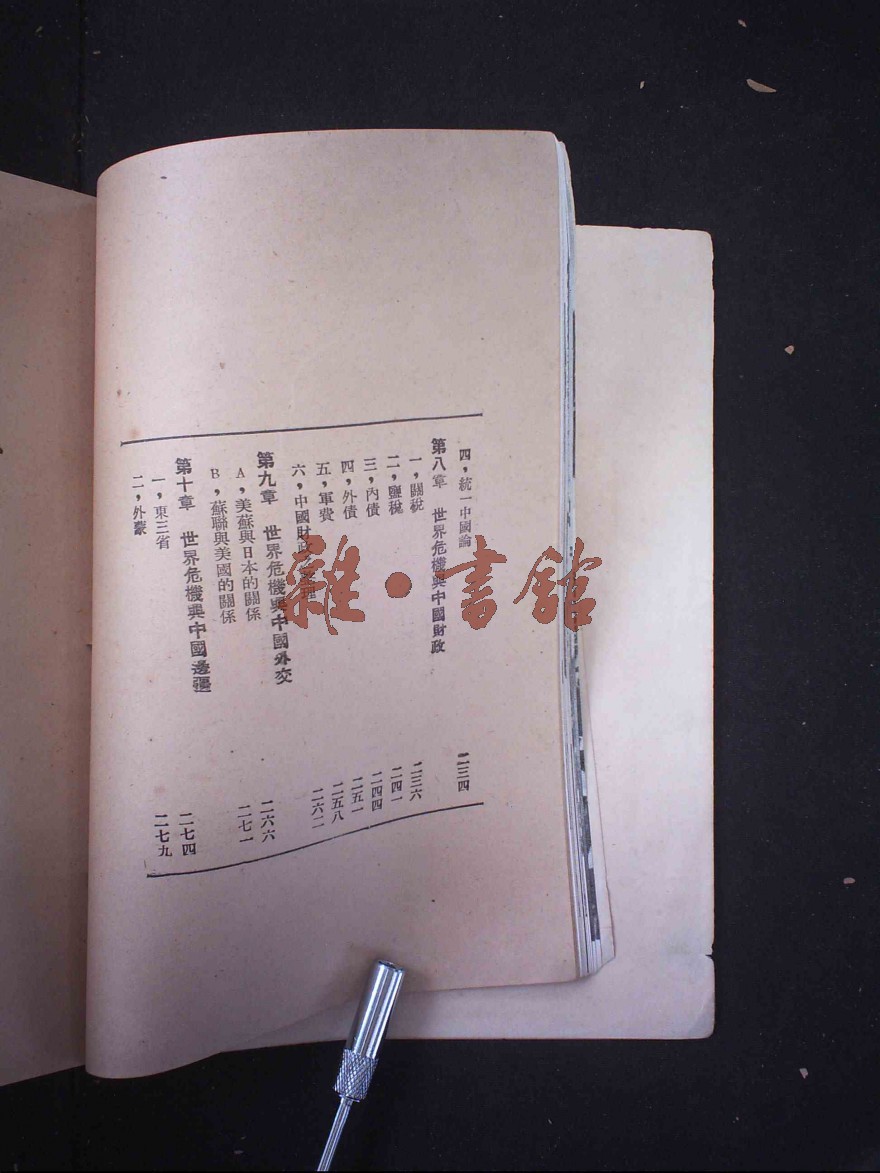 四，統一中國論 二三四
第八章 世界危機與中國財政
一，關稅 二三六
二，鹽稅 二四一
三，內債 二四四
四，外債 二五一
五，軍費 二五八
六，中國財政 理 二六二
第九章 世界危機與中國外交
A，美蘇與日本的關係 二六六
B，蘇聯與美國的關係 二七一
第十章 世界危機與中國邊疆
一，東三省 二七四
二，外蒙 二七九
雜·書館